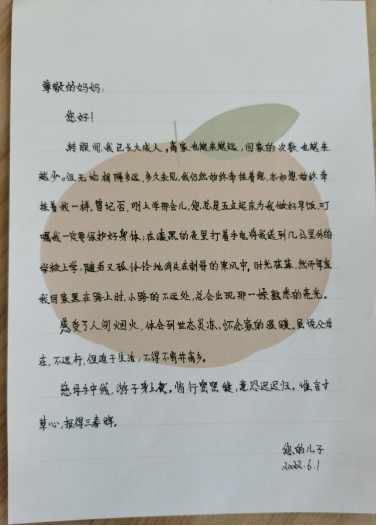 尊敬的妈妈:
您好!
转眼间,我已长大成人,离家也越来越远,回家的次数也越来
越少。但无论相隔多远,多久未见,我仍然始终牵挂着您,亦如您始终牵
挂着我一样。曾记否,刚上学那会儿,您总是五点起床为我做好早饭,叮
嘱我一定要保护好身体;在漆黑的夜里打着手电将我送到几公里外的
学校上学,随着又孤伶伶地消失在刺骨的寒风中。时光荏苒,然而每当
我回家黑在路上时,小路的不远处,总会出现那一缕熟悉的亮光。
感受了人间烟火,体会到世态炎凉,怀念家的温暖。虽说父母
在,不远行,但迫于生活,不得不离井离乡。
慈母手中线,游子身上衣。临行密密缝,意恐迟迟归。谁言寸
草心,报得三春晖。
您的儿子
2022.6.1